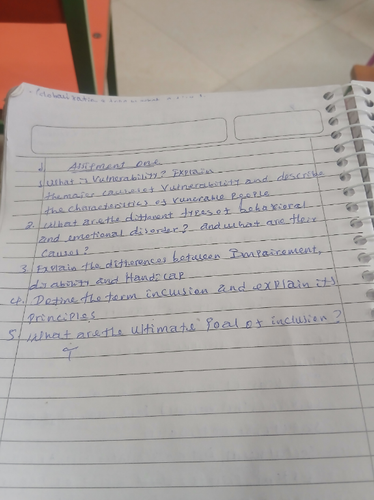 Assirment one
1. What is Vulnerability? Explain
the major causes of Vulnerability and describe
the characteristics of vunerable people
2. What are the different types of behavioral
and emotional disorder? and what are their
causes?
3. Explain the differences between Impairement,
disability and Handicap
4. Define the term inclusion and explain its
principles
5. What are the ultimate goal of inclusion?